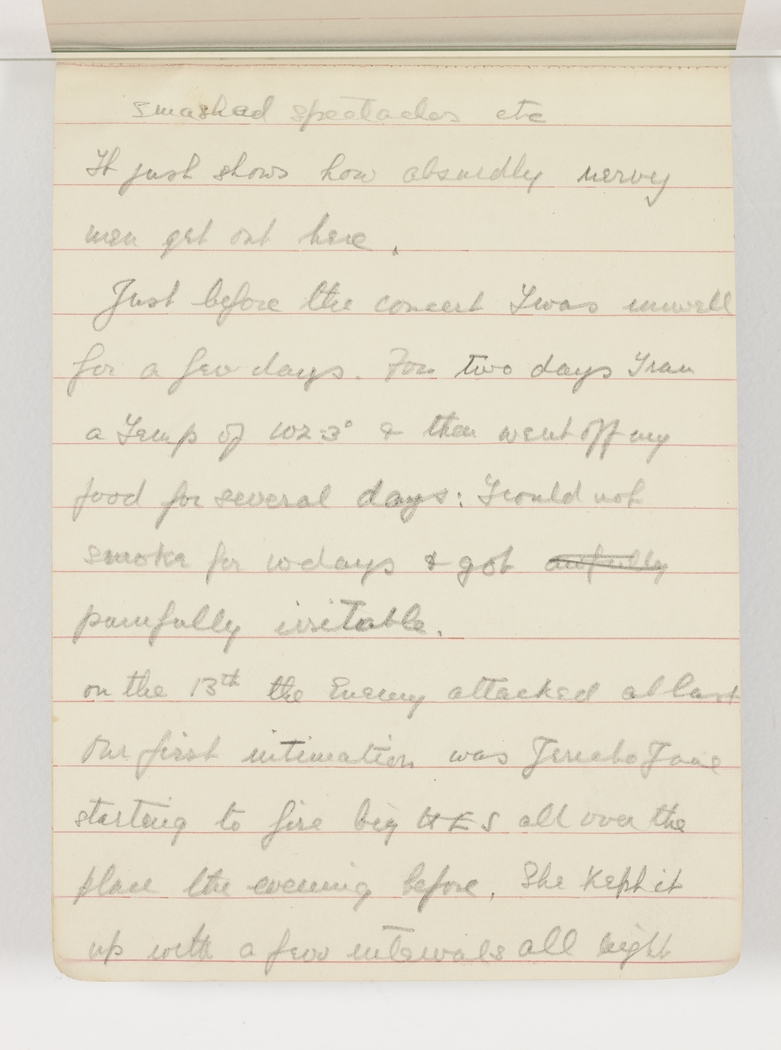 smashed spectacles etc
It just shows how absurdly nervy
men get out here.
Just before the concert I was unwell
for a few days. For two days I ran
a Temp of 102.3° & then went off my
food for several days: I could not
smoke for 10 days & got awfully
painfully irritable.
on the 13th the Enemy attacked at last
Our first intimation was Jericho Jane
starting to fire big H E S all over the
place the evening before. She kept it
up with a few intervals all night